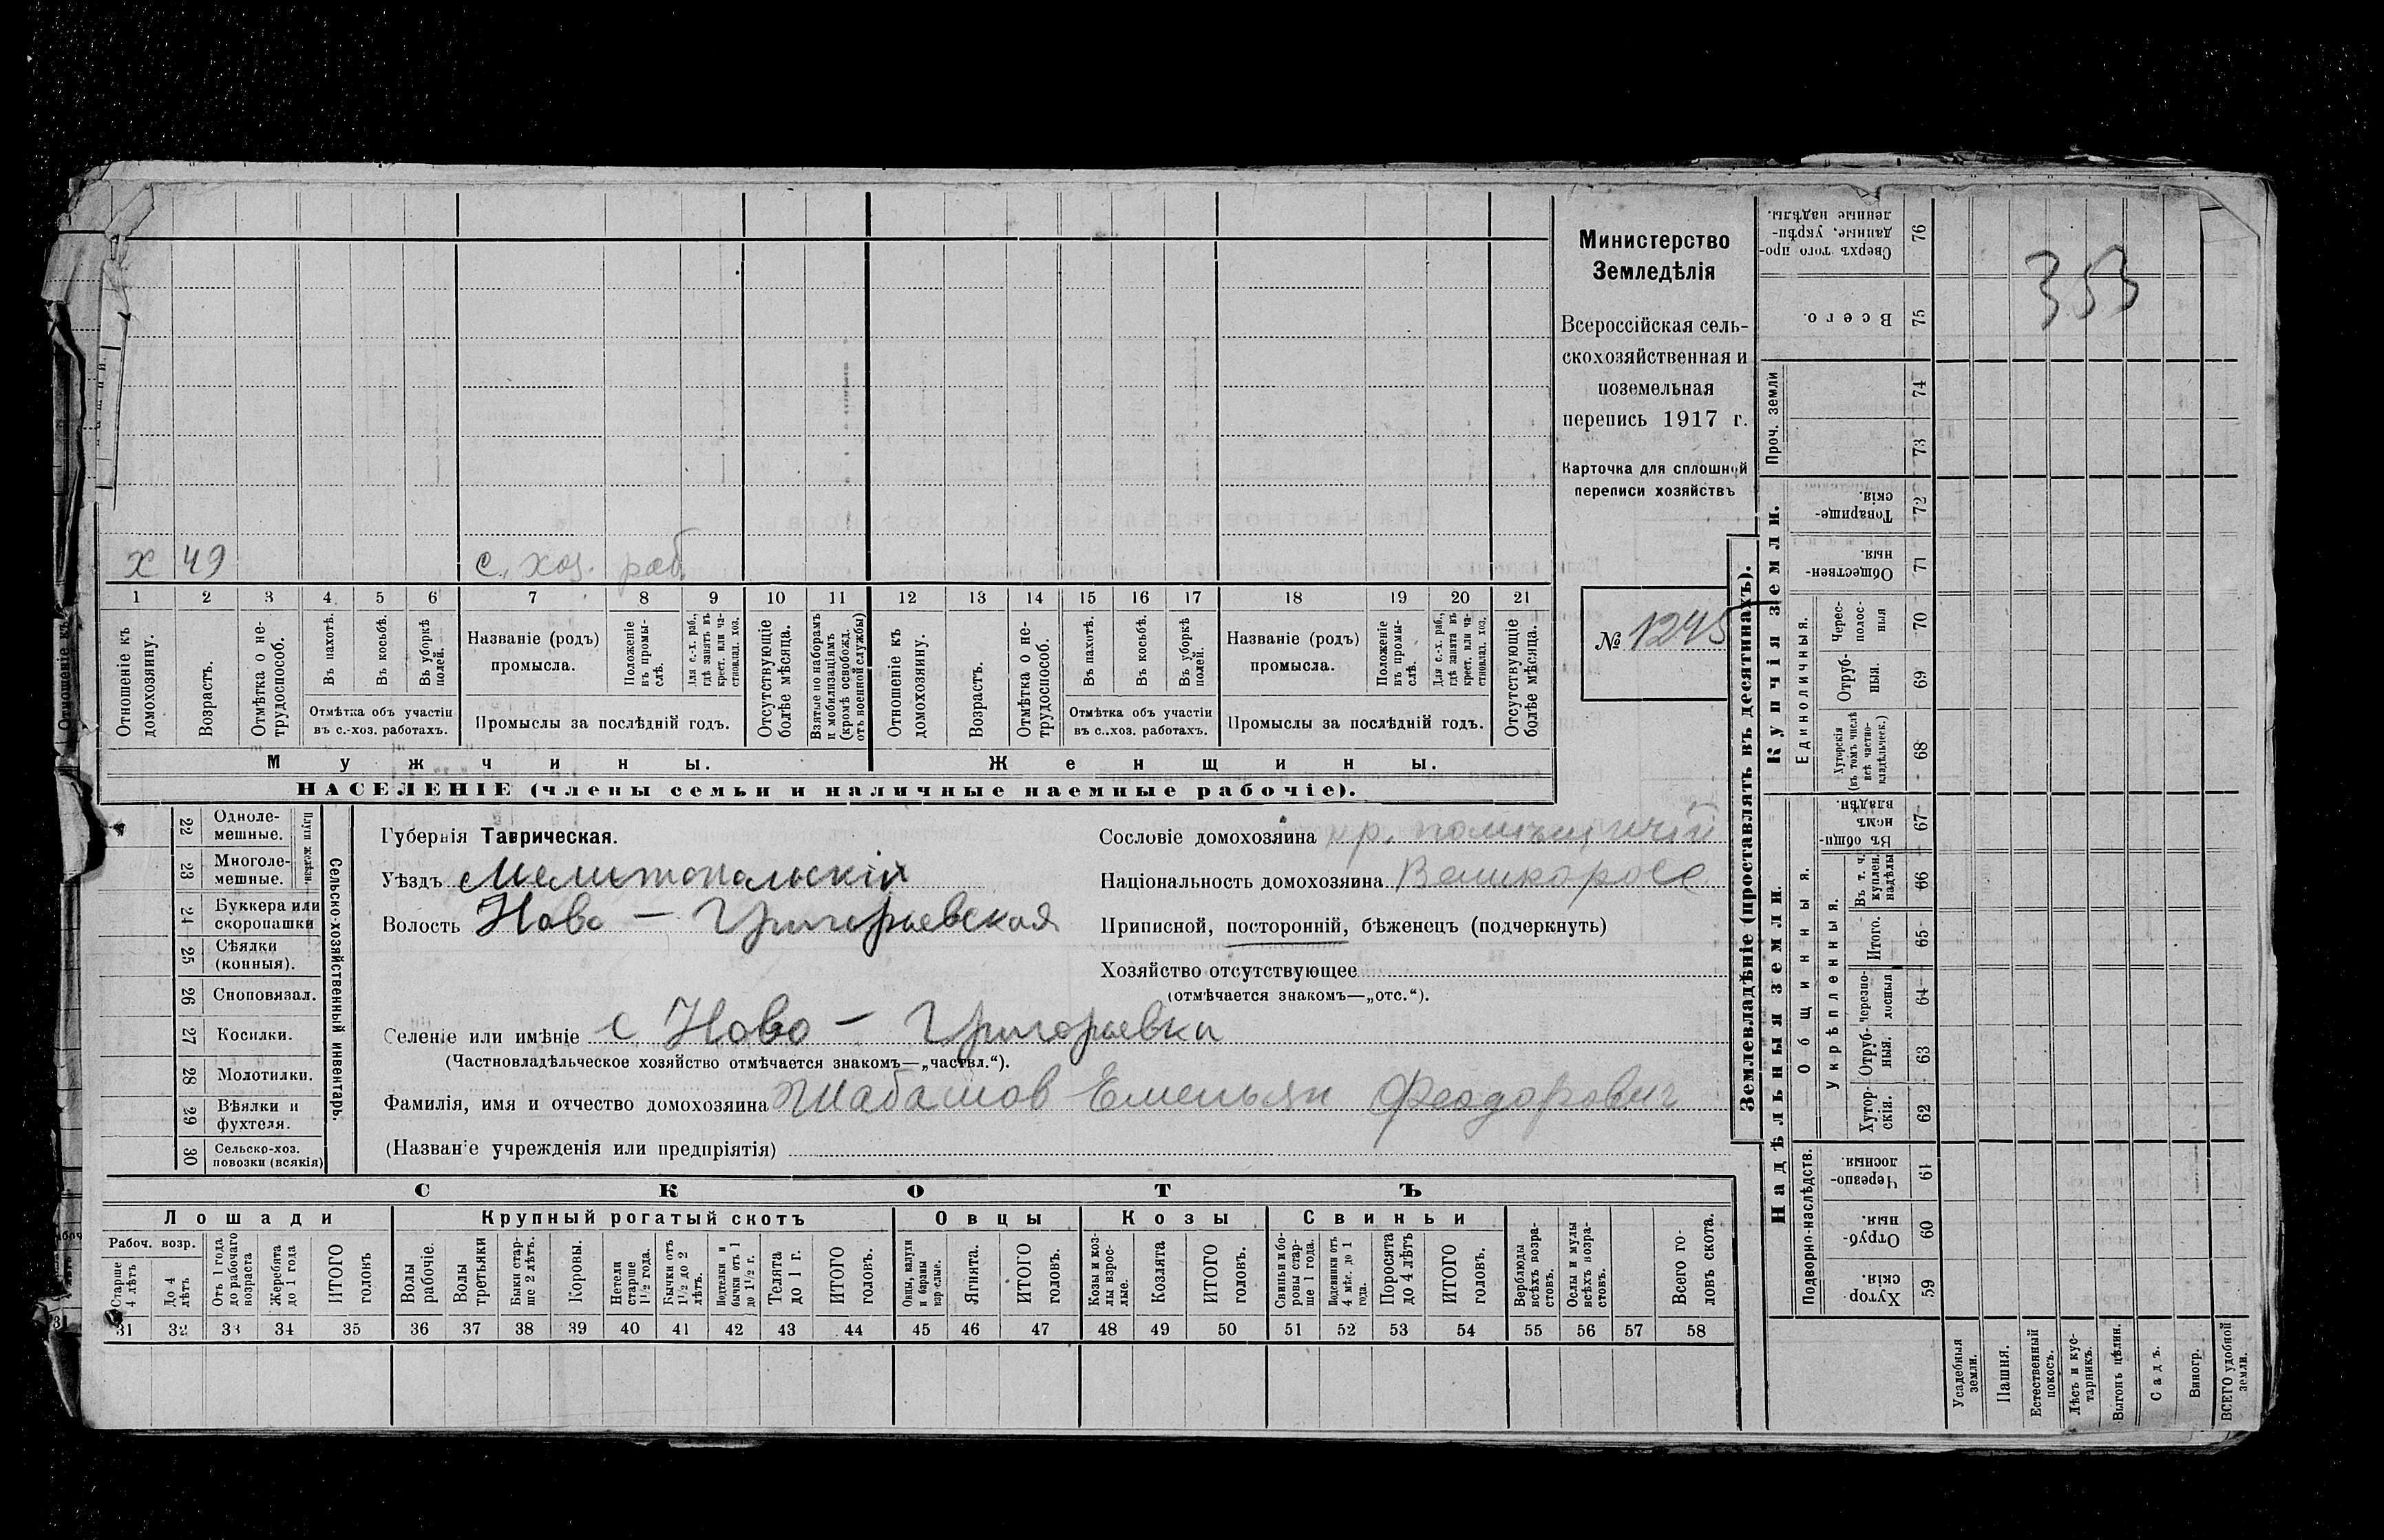 353
Министерство
Земледѣлія
Всероссійская сель-
скохозяйственная и
поземельная
перепись 1917 г.
Карточка для сплошной
переписи хозяйствъ
№ 1245
х 49 с. хоз. раб.
1 2 3 4 5 6 7 8 9 10 11 12 13 14 15 16 17 18 19 20 21
Отношеніе къ
домохозяину.
Возрастъ.
Отмѣтка о не-
трудоспособ.
Въ пахотѣ.
Въ косьбѣ.
Въ уборкѣ
полей.
Отмѣтка объ участіи
въ с.-хоз. работахъ.
Названіе (родъ)
промысла.
Положеніе
въ промы-
слѣ.
Для с.-х. раб.,
гдѣ занятъ въ
крест. или ча-
стновлад. хоз.
Промыслы за послѣдній годъ.
Отсутствующіе
болѣе мѣсяца.
Взятые по наборамъ
и мобилизаціямъ
(кромѣ освобожд.
отъ военной службы)
Отношеніе къ
домохозяину.
Возрастъ.
Отмѣтка о не-
трудоспособ.
Въ пахотѣ.
Въ косьбѣ.
Въ уборкѣ
полей.
Отмѣтка объ участіи
въ с.-хоз. работахъ.
Названіе (родъ)
промысла.
Положеніе
въ промы-
слѣ.
Для с.-х. раб.,
гдѣ занятъ въ
крест. или ча-
стновлад. хоз.
Промыслы за послѣдній годъ.
Отсутствующіе
болѣе мѣсяца.
Мужчины. Женщины.
НАСЕЛЕНІЕ (члены семьи и наличные наемные рабочіе).
22 Одноле-
мешные.
23 Многоле-
мешные.
Плуги желѣзн.
24 Буккера или
скоропашки
25 Сѣялки
(конныя).
26 Сноповязал.
27 Косилки.
28 Молотилки.
29 Вѣялки и
фухтеля.
30 Сельско-хоз.
повозки (всякія)
Сельско-хозяйственный инвентарь.
Губернія Таврическая.
Уѣздъ Мелитопольскій
Волость Ново - Григорьевская
Сословіе домохозяина
Національность домохозяина Великоросс
Приписной, посторонній, бѣженец (подчеркнуть)
Хозяйство отсутствующее
(отмѣчается знакомъ—„отс.“).
Селеніе или имѣніе с Ново - Григорьевка
(Частновладѣльческое хозяйство отмѣчается знакомъ—„частвл.“).
Фамилія, имя и отчество домохозяина Шабашов Емельян Феодорович
(Названіе учрежденія или предпріятія)
СКОТЪ
Лошади Крупный рогатый скотъ Овцы Козы Свиньи
Рабоч. возр.
Старше
4 лѣтъ
До 4
лѣтъ
Отъ 1 года
до рабочаго
возраста
Жеребята
до 1 года
ИТОГО
головъ
Волы
рабочіе.
Волы
третьяки
Быки стар-
ше 2 лѣтъ.
Коровы.
Нетели
старше
1½ года.
Бычки отъ
1½ до 2
лѣтъ.
Подтелки и
бычки отъ 1
до 1½ г.
Телята
до 1 г.
ИТОГО
головъ.
Овцы, валухи
и бараны
взрослые.
Ягнята.
ИТОГО
головъ.
Козы и коз-
лы взрос-
лые.
Козлята
ИТОГО
головъ.
Свиньи и бо-
ровы стар-
ше 1 года.
Подсвинки отъ
4 мѣс. до 1
года.
Поросята
до 4 лѣтъ
ИТОГО
головъ.
Верблюды
всѣхъ возра-
стовъ.
Ослы и мулы
всѣхъ возра-
стовъ.
Всего го-
ловъ скота.
31 32 33 34 35 36 37 38 39 40 41 42 43 44 45 46 47 48 49 50 51 52 53 54 55 56 57 58
Землевладѣніе (проставлять въ десятинахъ).
Надѣльныя земли. Купчія земли. Проч. земли
Подворно-наслѣдств.
Общинныя.
Укрѣпленныя.
Единоличныя.
Сверхъ того про-
данные, укрѣп-
ленные надѣлы. 76
Всего. 75
74
73
Товарище-
скія. 72
Обществен-
ныя. 71
Черес-
полос-
ныя 70
Отруб-
ныя. 69
Хуторскія
(въ томъ числѣ
всѣ частно-
владѣльческ.) 68
Въ общин-
номъ
владѣн. 67
Въ т. ч.
куплен.
надѣлы 66
Итого. 65
Черезпо-
лосныя 64
Отруб-
ныя. 63
Хутор-
скія. 62
Черезпо-
лосныя. 61
Отруб-
ныя. 60
Хутор-
скія. 59
Усадебныя
земли.
Пашня.
Естественный
покосъ.
Лѣсъ и кус-
тарникъ.
Выгонъ цѣлин.
Садъ.
Виногр.
ВСЕГО удобной
земли.